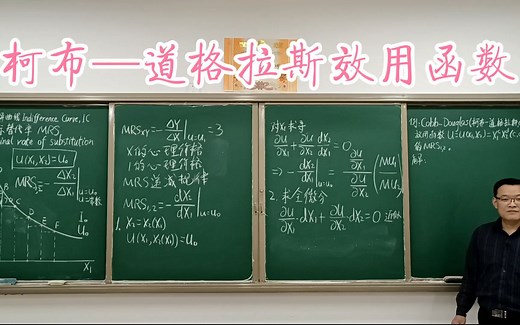 柯布—道格拉斯效用函数
Indifference Curve, IC
替代率 MRS
marginal rate of substitution
U(X₁,X₂)=U₀
MRS₁,₂=-ΔX₂/ΔX₁|u=u₀
C D E F
I₀
U₀
X₁
MRSxy=-ΔY/ΔX|u=u₀=3
X的心理价格
MRS递减规律
MRS₁,₂=-dX₂/dX₁|u=u₀
1. X₂=X₂(X₁)
U(X₁,X₂(X₁))=U₀
对X₁求导
∂U/∂X₁+∂U/∂X₂ dX₂/dX₁=0
⇒-dX₂/dX₁|u=u₀=∂U/∂X₁/∂U/∂X₂(MU₁/MU₂)
2. 求全微分
∂U/∂X₁dX₁+∂U/∂X₂dX₂=0
例: Cobb-Douglas(柯布-道格拉斯)
效用函数U=U(X₁,X₂)=
的MRS₁,₂
解: